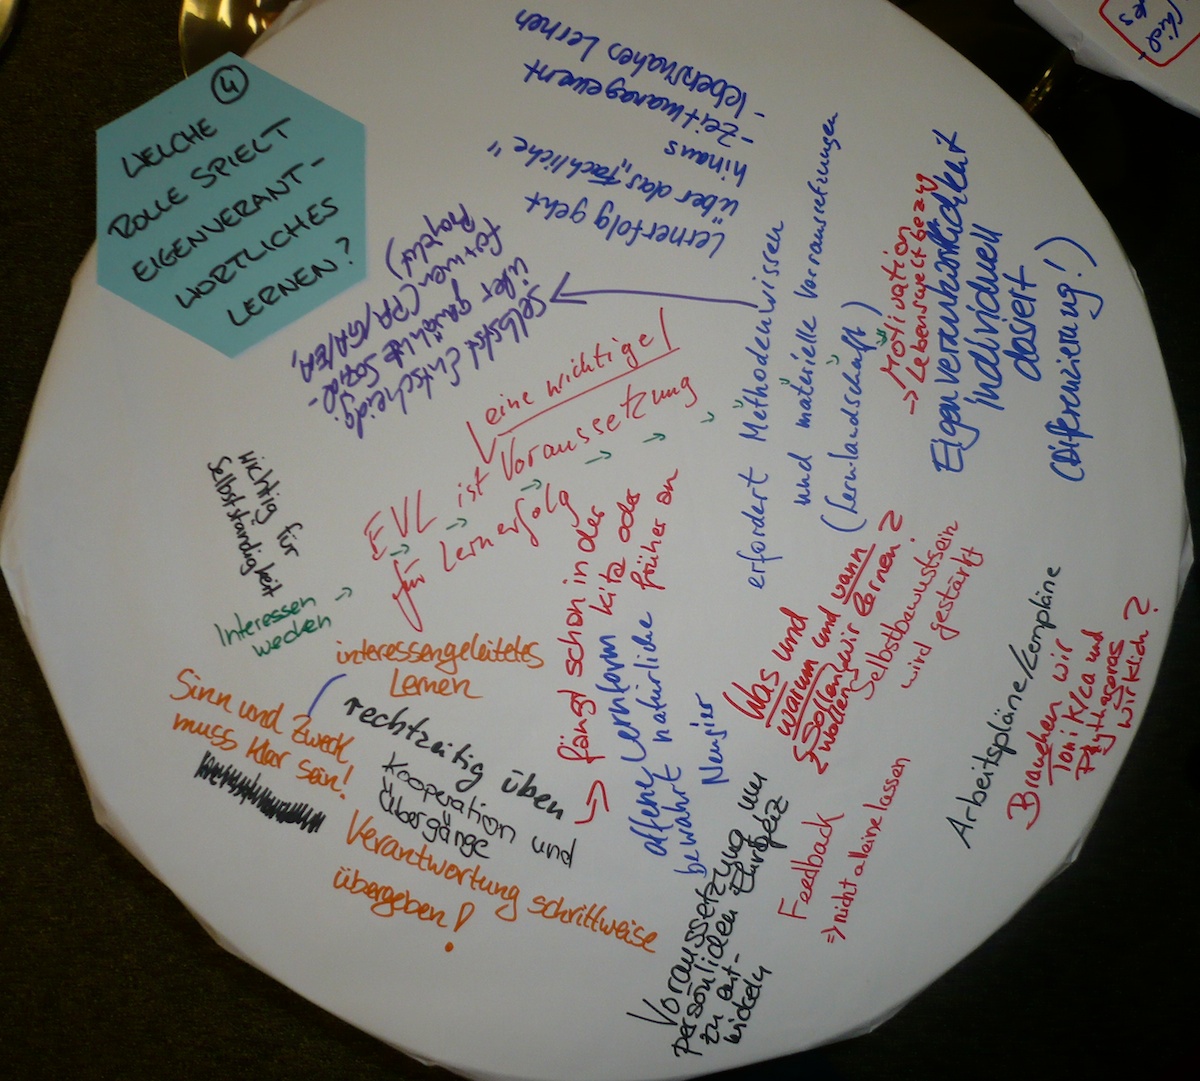 4
WELCHE
ROLLE SPIELT
EIGENVERANT-
WORTLICHES
LERNEN?
Lernerfolg geht
über das „fachliche"
hinaus
- Zeitmanagement
- lebensnahes Lernen
selbst Entscheidg.
über gewählte Sozial-
formen (PA/GA/EA,
Projekt)
eine wichtige
EVL ist Voraussetzung
für Lernerfolg
erfordert Methodenwissen
und materielle Vorraussetzungen
(Lernlandschaft)
-> Motivation
-> Lebensweltbezug
Eigenverantwortlichkeit
individuell
dosiert
(Differenzierung!)
wichtig für
Selbstständigkeit
Interessen
wecken
interessengeleitetes
Lernen
Sinn und Zweck
muss klar sein!
rechtzeitig üben
Kooperation und
Übergänge
Verantwortung schrittweise
übergeben!
fängt schon in der
Kita oder
früher an
offene Lernform
bewahrt natürliche
Neugier
Was und
warum und wann
sollen wir lernen?
wollen
Selbstbewustsein
wird gestärkt
Voraussetzung um
persönlichen Ehrgeiz
zu ent-
wickeln
Feedback
=> nicht alleine lassen
Arbeitspläne/Lernpläne
Brauchen wir
Toni K/ca und
Pythagoras
wirklich?